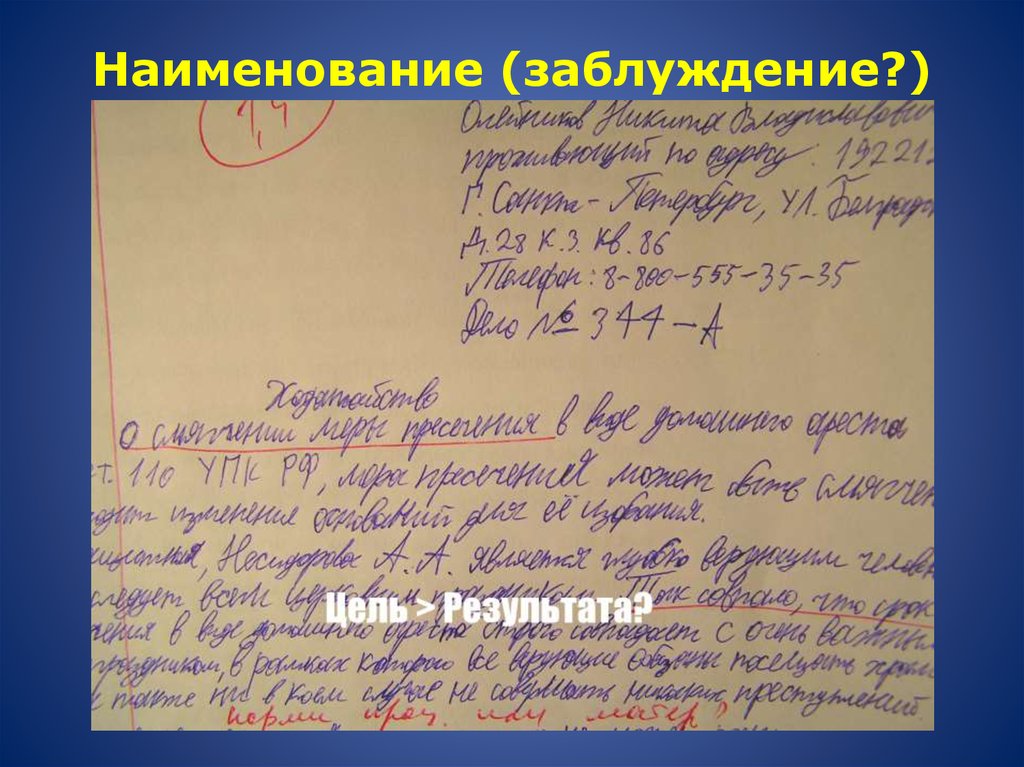 Наименование (заблуждение?)
1,4
Олейников Никита Владиславович
проживающий по адресу: 192212
Г. Санкт-Петербург, ул. Белградс
Д. 28 К.3. Кв. 86
Телефон: 8-800-555-35-35
Дело № 344-А
Ходатайство
О смягчении меры пресечения в виде домашнего ареста
ст. 110 УПК РФ, мера пресечения может быть смягчен
изменения оснований для её избрания.
Несидорова А. А. является глубоко верующим челове
следует всем церковным Так совпало, что срок
Цель > Результата?
чения в виде домашнего ареста строго совпадает с очень важным
праздником, в рамках которого все верующие обязаны посещать храм
а также ни в коем случае не совершать никаких преступлений.
нормы проц. или матер?